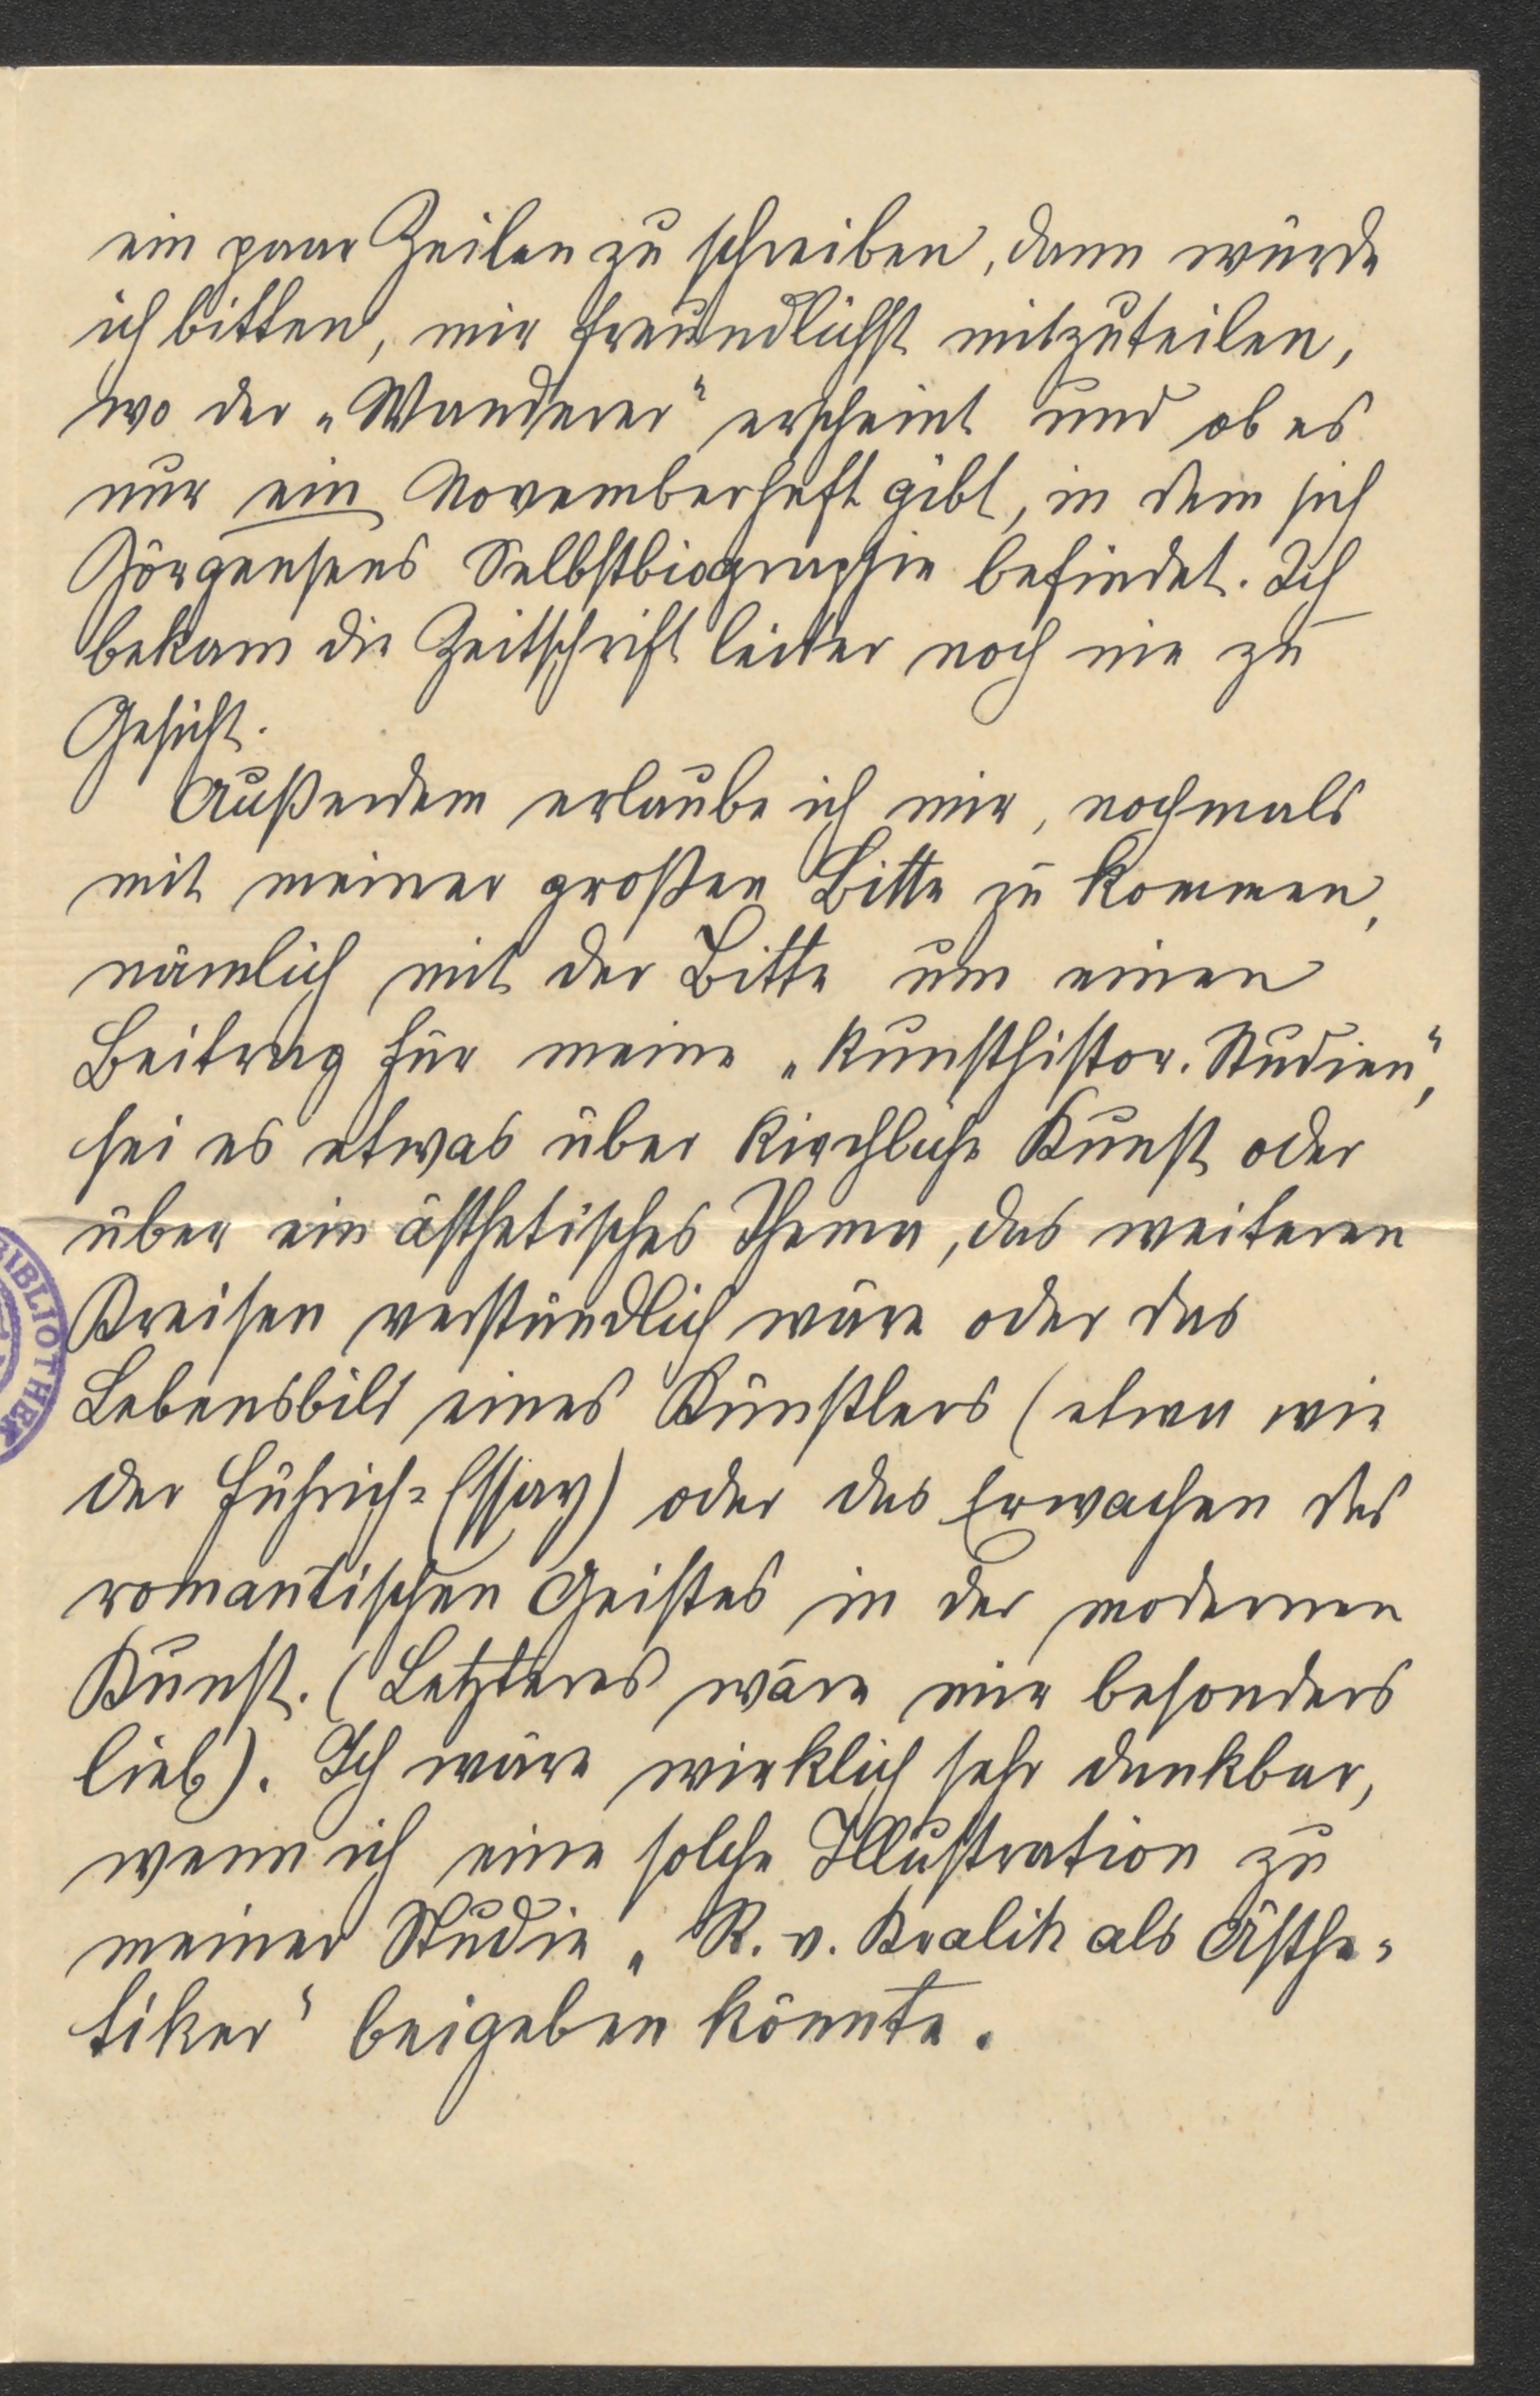 ein paar Zeilen zu schreiben, dann würde
ich bitten, mir freundlichst mitzuteilen,
wo der „Wanderer“ erscheint und ob es
nur ein Novemberheft gibt, in dem sich
Jörgensens Selbstbiographie befindet. Ich
bekam die Zeitschrift leider noch nie zu
Gesicht.
Außerdem erlaube ich mir, nochmals
mit meiner großen Bitte zu kommen,
nämlich mit der Bitte um einen
Beitrag für meine „Kunsthistor. Studien“,
sei es etwas über kirchliche Kunst oder
über ein ästhetisches Thema, das weiteren
Kreisen verständlich wäre oder das
Lebensbild eines Künstlers (etwa wie
der Führich-Essay) oder das Erwachen des
romantischen Geistes in der modernen
Kunst. (Letzteres wäre mir besonders
lieb). Ich wäre wirklich sehr dankbar,
wenn ich eine solche Illustration zu
meiner Studie „R. v. Kralik als Ästhe-
tiker“ beigeben könnte.
BIBLIOTHEK